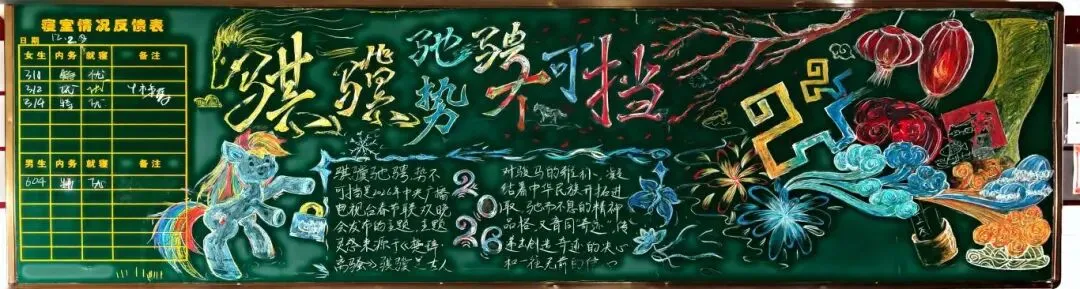 寝室情况反馈表
日期 12.2
女生 内务 就寝 备注
310 优
312 优 优
314 特 优
男生 内务 就寝 备注
604 优
骐骥驰骋
势不可挡
骐骥驰骋 势不
可挡是2026年中央广播
电视总台春节联欢晚
会发布的主题,主题
灵感来源于《楚辞·
离骚》骐骥是古人
2026
对骏马的雅称,凝
结着中华民族开拓进
取、驰而不息的精神
品格,又音同奇迹,传
递出创造奇迹的决心
和一往无前的信